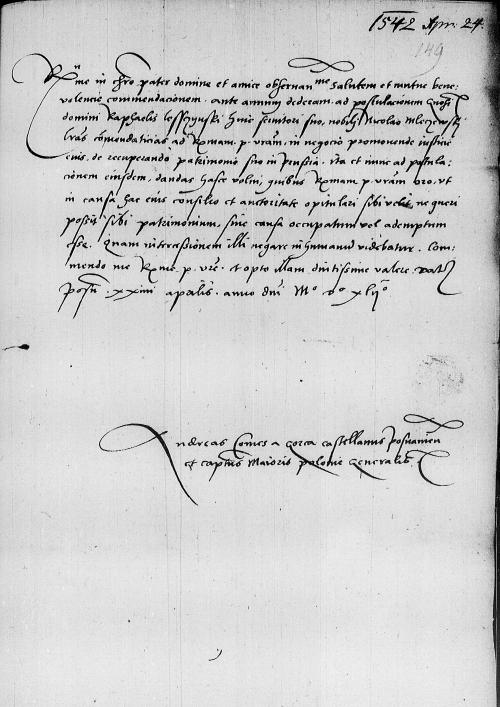 1542 Apr. 24.
149
Rme in chro pater domine et amice observanme Salutem et mutue bene:
volencie commendacionem. ante annum dederam ad postulacionem Gnosi
domini Raphaelis lesszynski huic servitori suo, nobili Nicolao
lras comendaticias ad Romam. p. vram. in negocio promovende iusticie
eius. de recuperando patrimonio suo in Prussia. ita et nunc ad postula:
cionem eiusdem, dandas hasce volui, quibus Romam p. vram oro. ut
in causa hac eius consilio et auctoritate opitulari sibi velit, ne queri
possit sibi patrimonium, sine causa occupatum vel ademptum
esse. Quam intercessionem illi negare inhumanum videbatur. Com:
mendo me Rme. p. vre. et opto illam diutissime valere. Dat
Posn. xxiiii aprilis. anno dni Mo do xlijo
Andreas Comes a Gorca castellanus posnanien
et captus Maioris polonie Generalis.